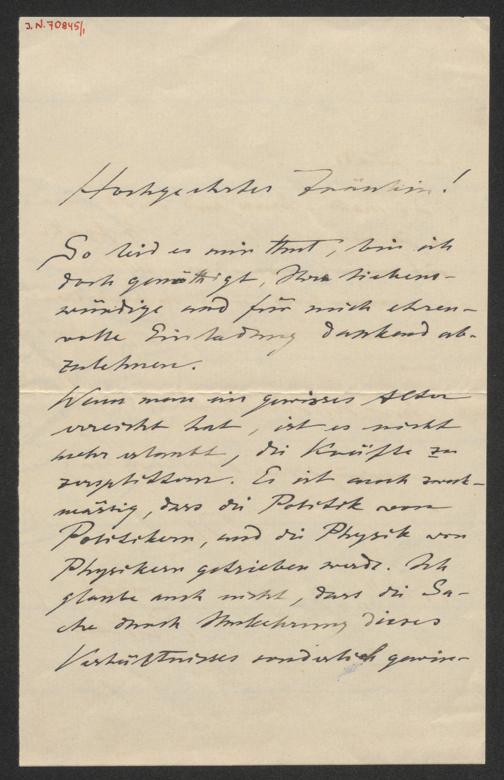 J.N. 70845/1
Hochgeehrtes Fräulein!
So leid es mir thut, bin ich
doch genöthigt, Ihre liebens-
würdige und für mich ehren-
volle Einladung dankend ab-
zulehnen.
Wenn man ein gewisses Alter
erreicht hat, ist es nicht
mehr erlaubt, die Kräfte zu
zersplittern. Es ist auch zweck-
mässig, dass die Politik von
Politikern, und die Physik von
Physikern getrieben werde. Ich
glaube auch nicht, dass die Sa-
che durch Umkehrung dieses
Verhältnisses sonderlich gewin-